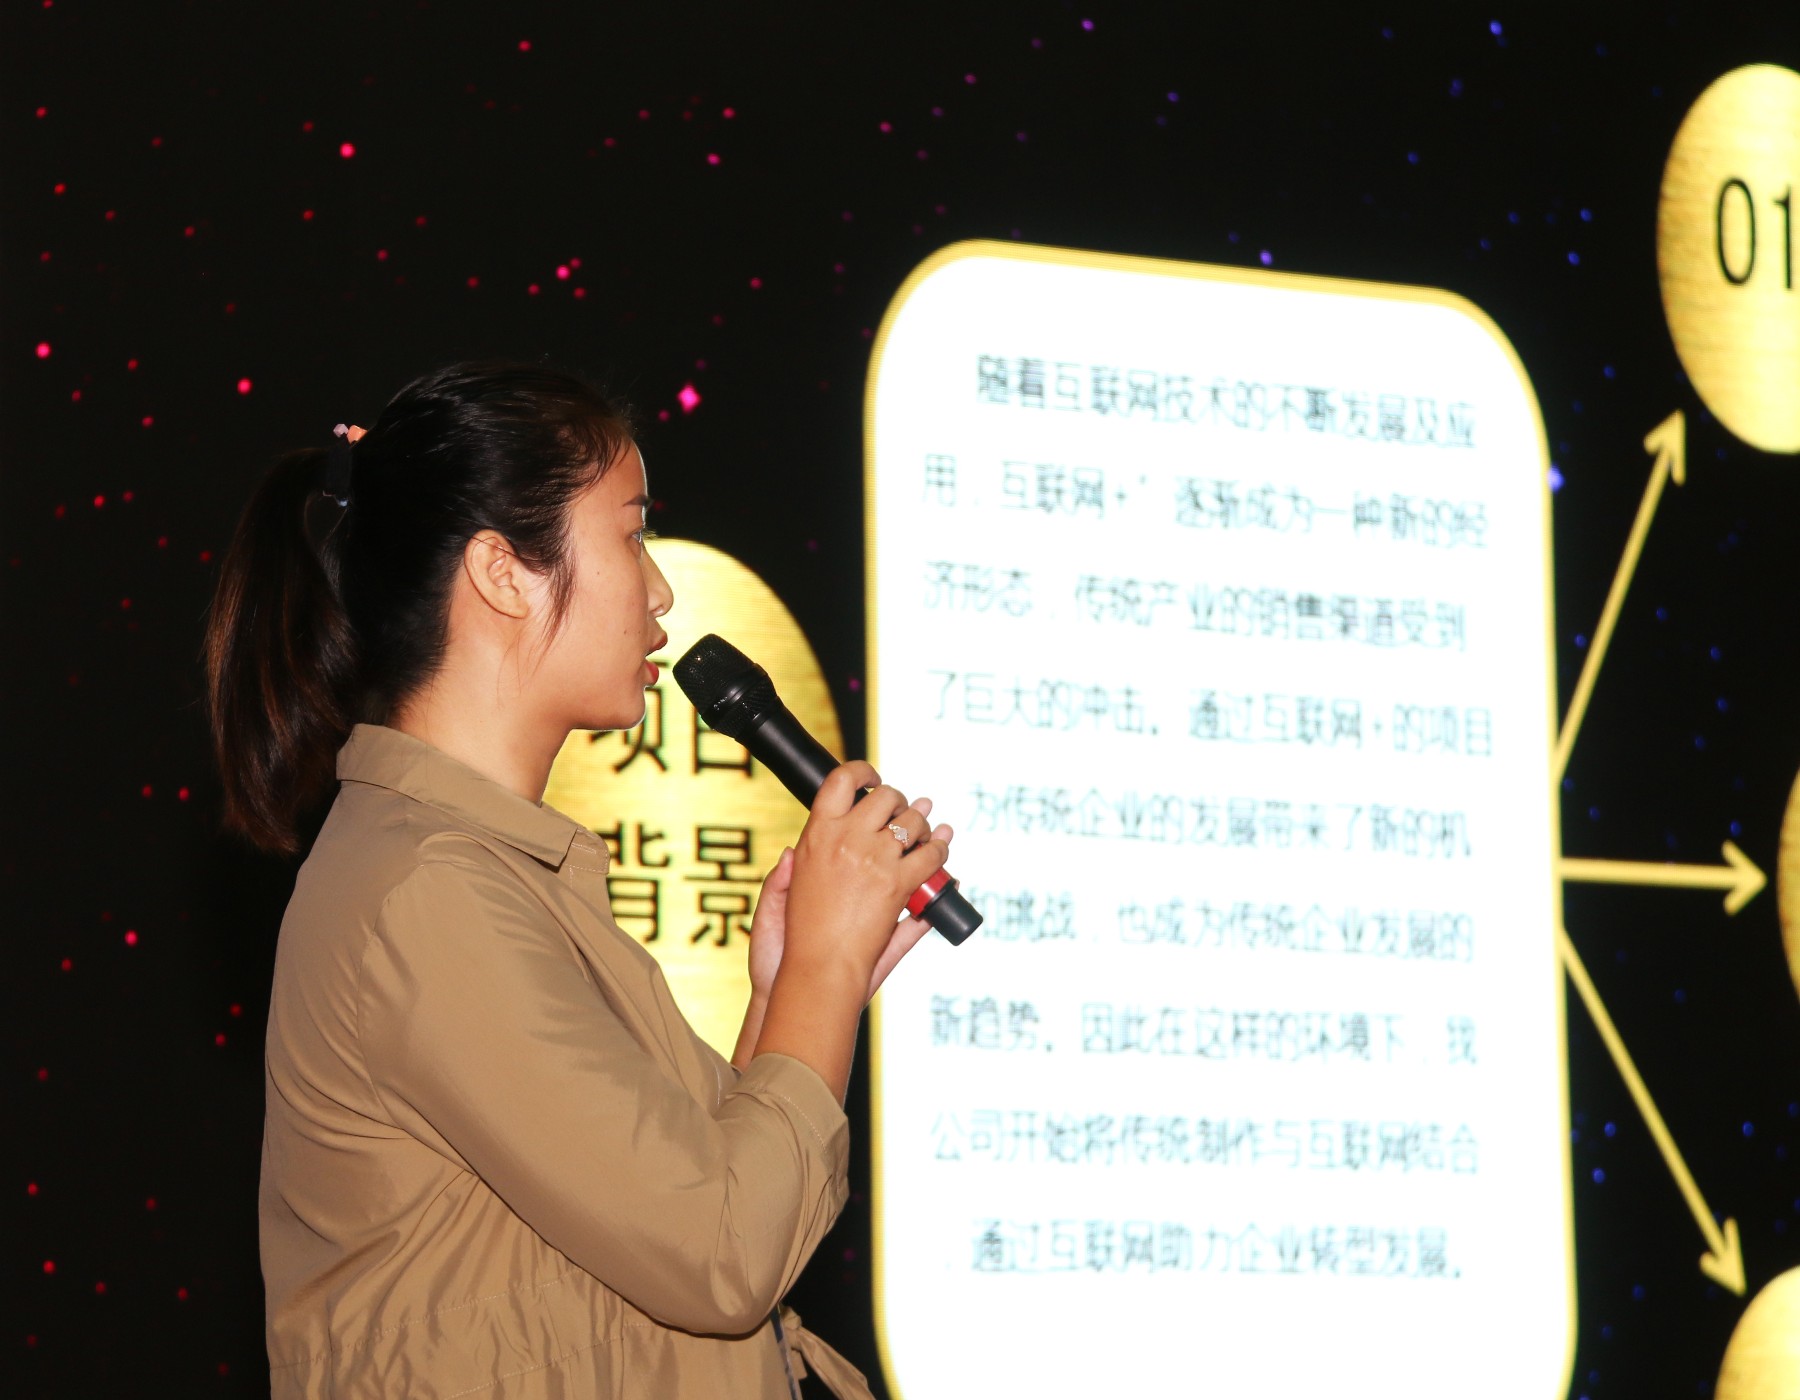 项目
背景
随着互联网技术的不断发展及应
用，互联网+’逐渐成为一种新的经
济形态，传统产业的销售渠道受到
了巨大的冲击。通过互联网+的项目
为传统企业的发展带来了新的机
和挑战，也成为传统企业发展的
新趋势。因此在这样的环境下，我
公司开始将传统制作与互联网结合
，通过互联网助力企业转型发展。
01